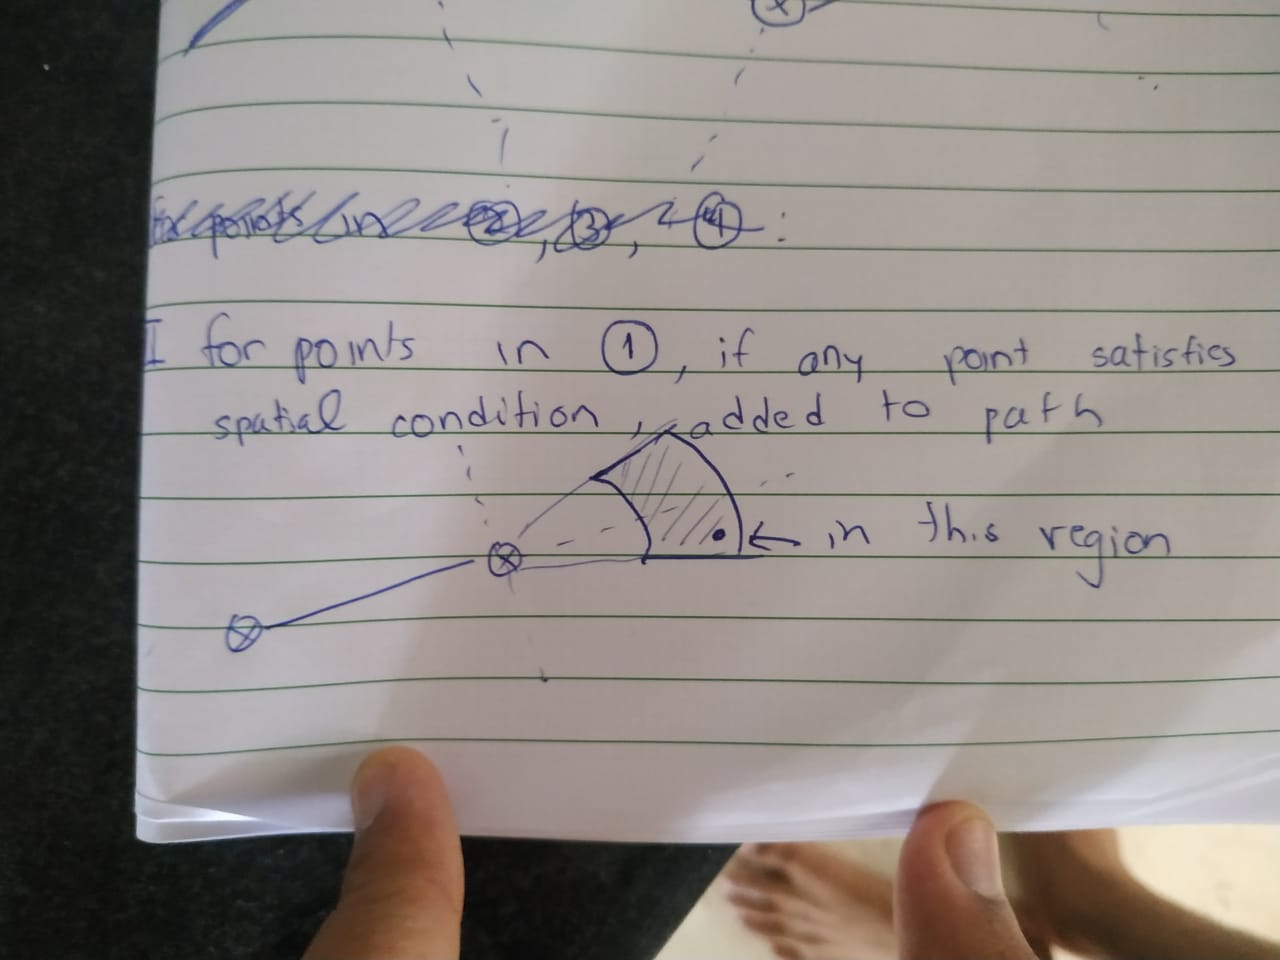 for points in ②, ③, ④ :
I for points in ①, if any point satisfies
spatial condition, added to path
← in this region